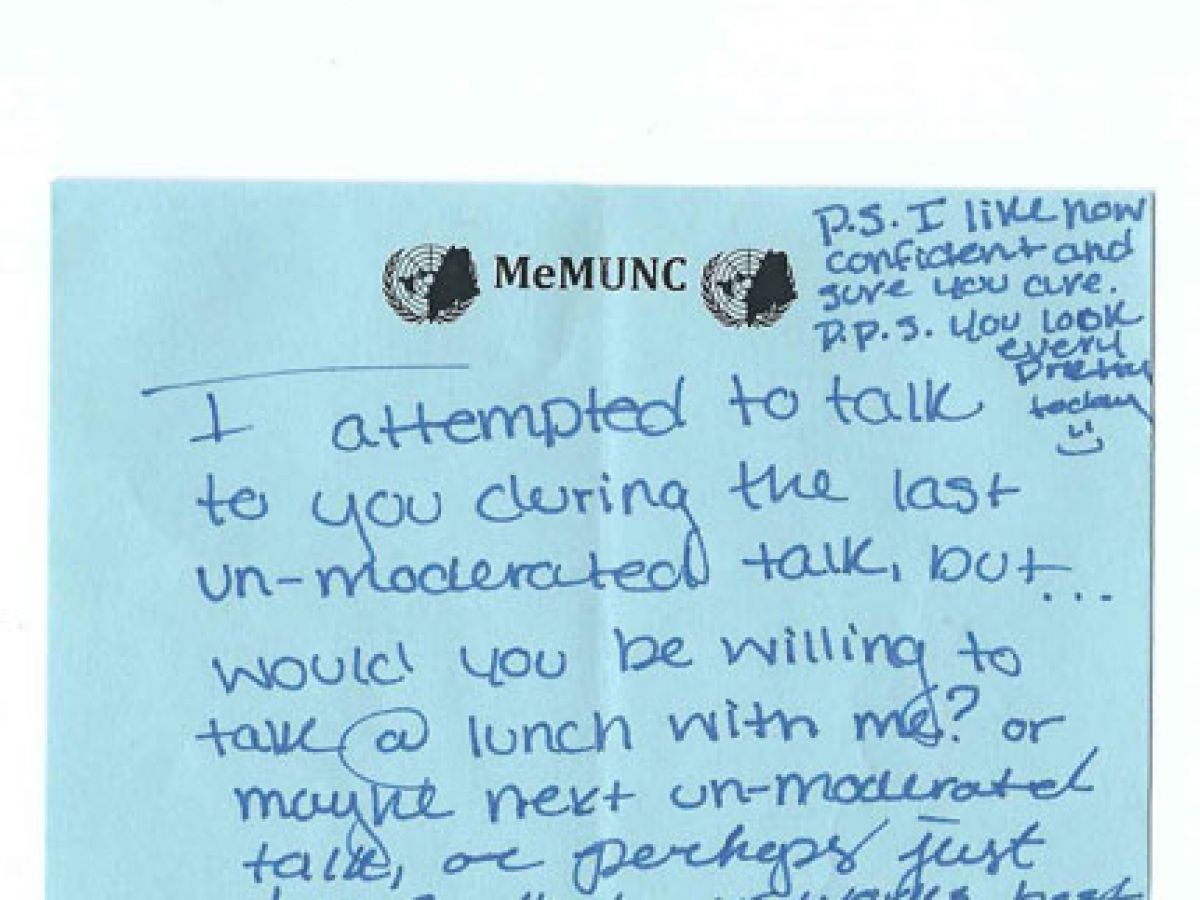 MeMUNC
P.S. I like how
confident and
sure you are.
P.P.S. you look
every
pretty
today
I attempted to talk
to you during the last
un-moderated talk, but...
would you be willing to
talk @ lunch with me? or
maybe next un-moderated
talk, or perhaps just
works best